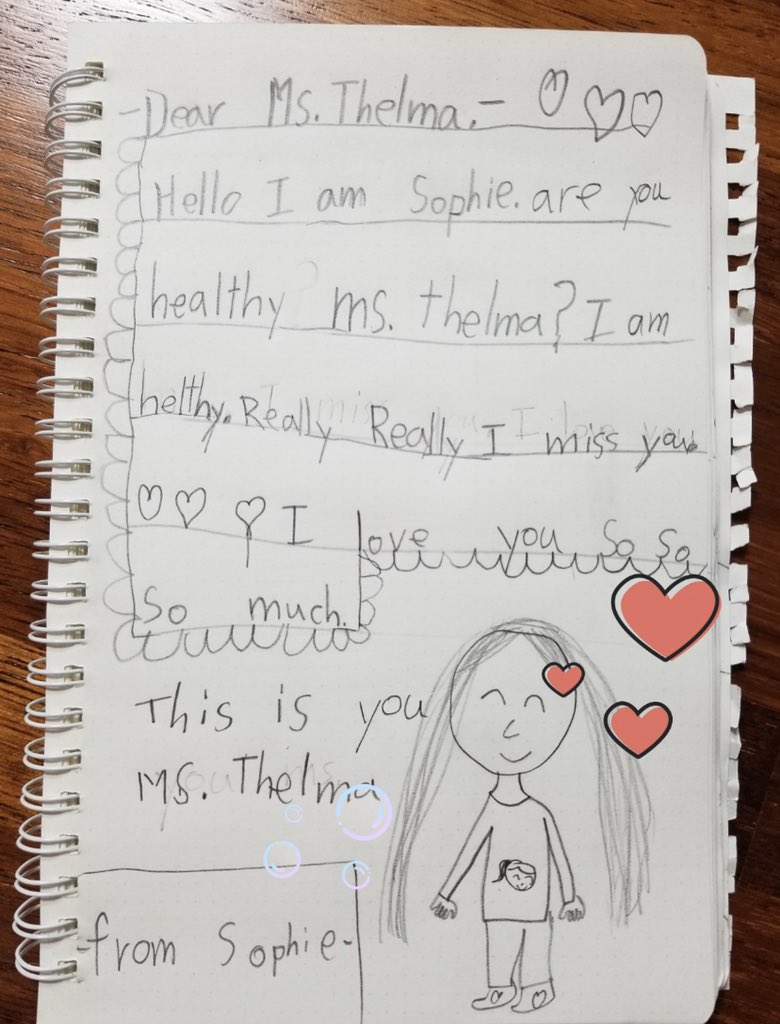 -Dear Ms. Thelma.-
Hello I am Sophie. are you
healthy ms. thelma? I am
helthy. Really Really I miss you.
I love you So So
So much.
This is you
Ms. Thelma
-from Sophie-